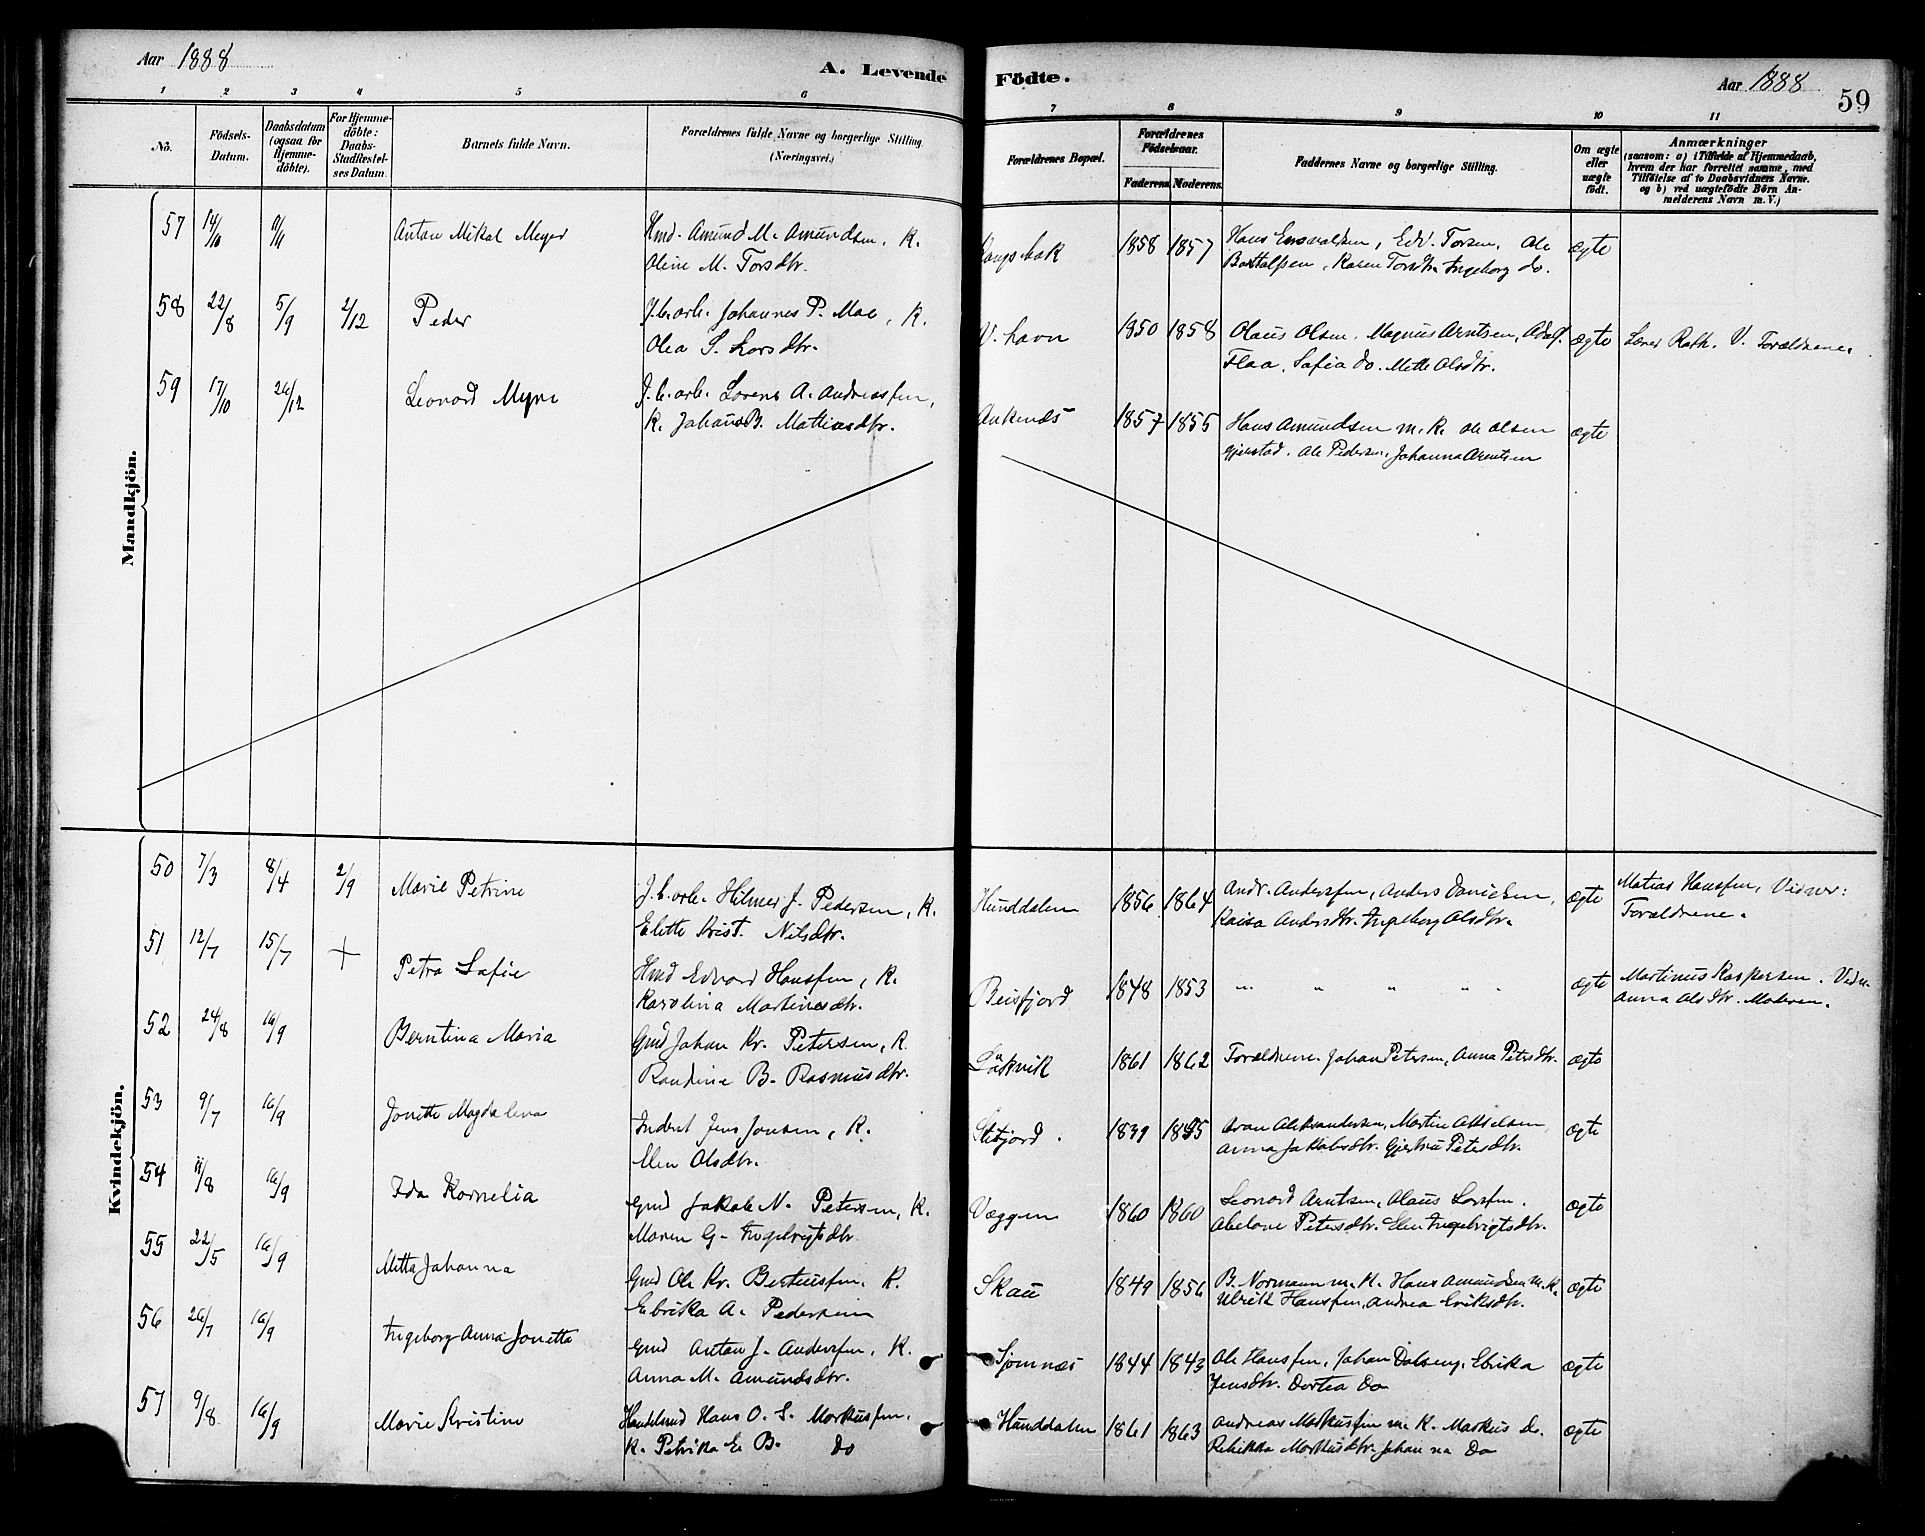 Aar 1888
A. Levende Födte.
Aar 1888
59
1 2 3 4 5 6 7 8 9 10 11
No.
Födsels-Datum.
Daabsdatum (ogsaa for Hjemme-döbte).
For Hjemme-döbte: Daabs-Stadfæstel-ses Datum.
Barnets fulde Navn.
Forældrenes fulde Navne og borgerlige Stilling (Næringsvei.)
Forældrenes Bopæl.
Forældrenes Födselsaar.
Faderens. Moderens.
Faddernes Navne og borgerlige Stilling.
Om ægte eller uægte födt.
Anmærkninger
(saasom: a) i Tilfælde af Hjemmedaab,
hvem der har forrettet samme, med
Tilföielse af to Daabsvidners Navne.
og b) ved uægtefödte Börn An-
melderens Navn m. V.)
Mandkjön.
57 14/10 11/11 Anton Mikal Meyer Hmd. Amund M. Amundsen, K. 1858 1857 Hans Enevaldsen, Edv. Torsen, Ole ægte
Oline M. Torsdtr. Karen Torsdtr. Ingeborg do.
58 22/8 5/9 2/12 Peder J.b.arb. Johannes P. Moe, K. V. havn 1850 1858 Olaus Olsen, Magnus Arntsen, Adolf ægte Lærer Rath. V. Forældrene.
Olea S. Larsdtr. Flaa, Safia do. Mette Olsdtr.
59 17/10 26/12 Leonard Myre J.b.arb. Lorens A. Andreassen, Ankenæs 1857 1855 Hans Amundsen m. K. Ole Olsen ægte
K. Johanna B. Mathiasdtr. Gjerstad. Ole Pedersen, Johanna Arntsen
Kvindekjön.
50 7/3 8/4 2/9 Marie Petrine J.b.arb. Hilmer J. Pedersen, K. Hunddalen 1856 1864 Andr. Anderssen, Anders Danielsen, ægte Matias Hanssen, Vidner:
Elette Krist. Nilsdtr. Kaisa Andersdtr. Ingeborg Olsdtr. Forældrene.
51 12/7 15/7 + Petra Safie Hmd Edvard Hanssen, K. Beisfjord 1848 1853 " " " " " ægte Martinus Kaspersen. Vidn.
Karolina Martinesdtr. Anna Olsdtr. Moderen.
52 24/8 16/9 Berntina Maria Gmd Johan Kr. Petersen, K. Låkvik 1861 1862 Forældrene. Johan Petersen, Anna Petersdtr. ægte
Randine B. Rasmusdtr.
53 9/7 16/9 Jonette Magdalena Inderst Jens Jonsen, K. 1839 1855 Aleksandersen, Martin ægte
Elen Olsdtr. Anna Jakobsdtr. Gjertrue Petersdtr.
54 11/8 16/9 Ida Kornelia Gmd Jakob N. Petersen, K. Væggen 1860 1860 Leonard Arntsen, Olaus Larssen. ægte
Maren G. Ingebrigtsdtr. Abelone Petersdtr. Elen Ingebrigtsdtr.
55 22/5 16/9 Mette Johanna Gmd Ole Kr. Berteussen, K. Skau 1849 1856 B. Normann m. K. Hans Amundsen m. K. ægte
Ebrika A. Pedersen Ulrik Hanssen, Andrea Eriksdtr.
56 26/7 16/9 Ingeborg Anna Jonette Gmd Anton J. Anderssen, K. Sjomnæs 1844 1843 Ole Hanssen, Johan Dalseng, Ebrika ægte
Anna M. Amundsdtr. Jensdtr. Dortea Do
57 9/8 16/9 Marie Kristine Handelsmd Hans O. S. Markussen, Hunddalen 1861 1863 Andreas Markussen m. K. Markus Do. ægte
K. Petrika E. B. do Rebekka Markusdtr. Johanna Do